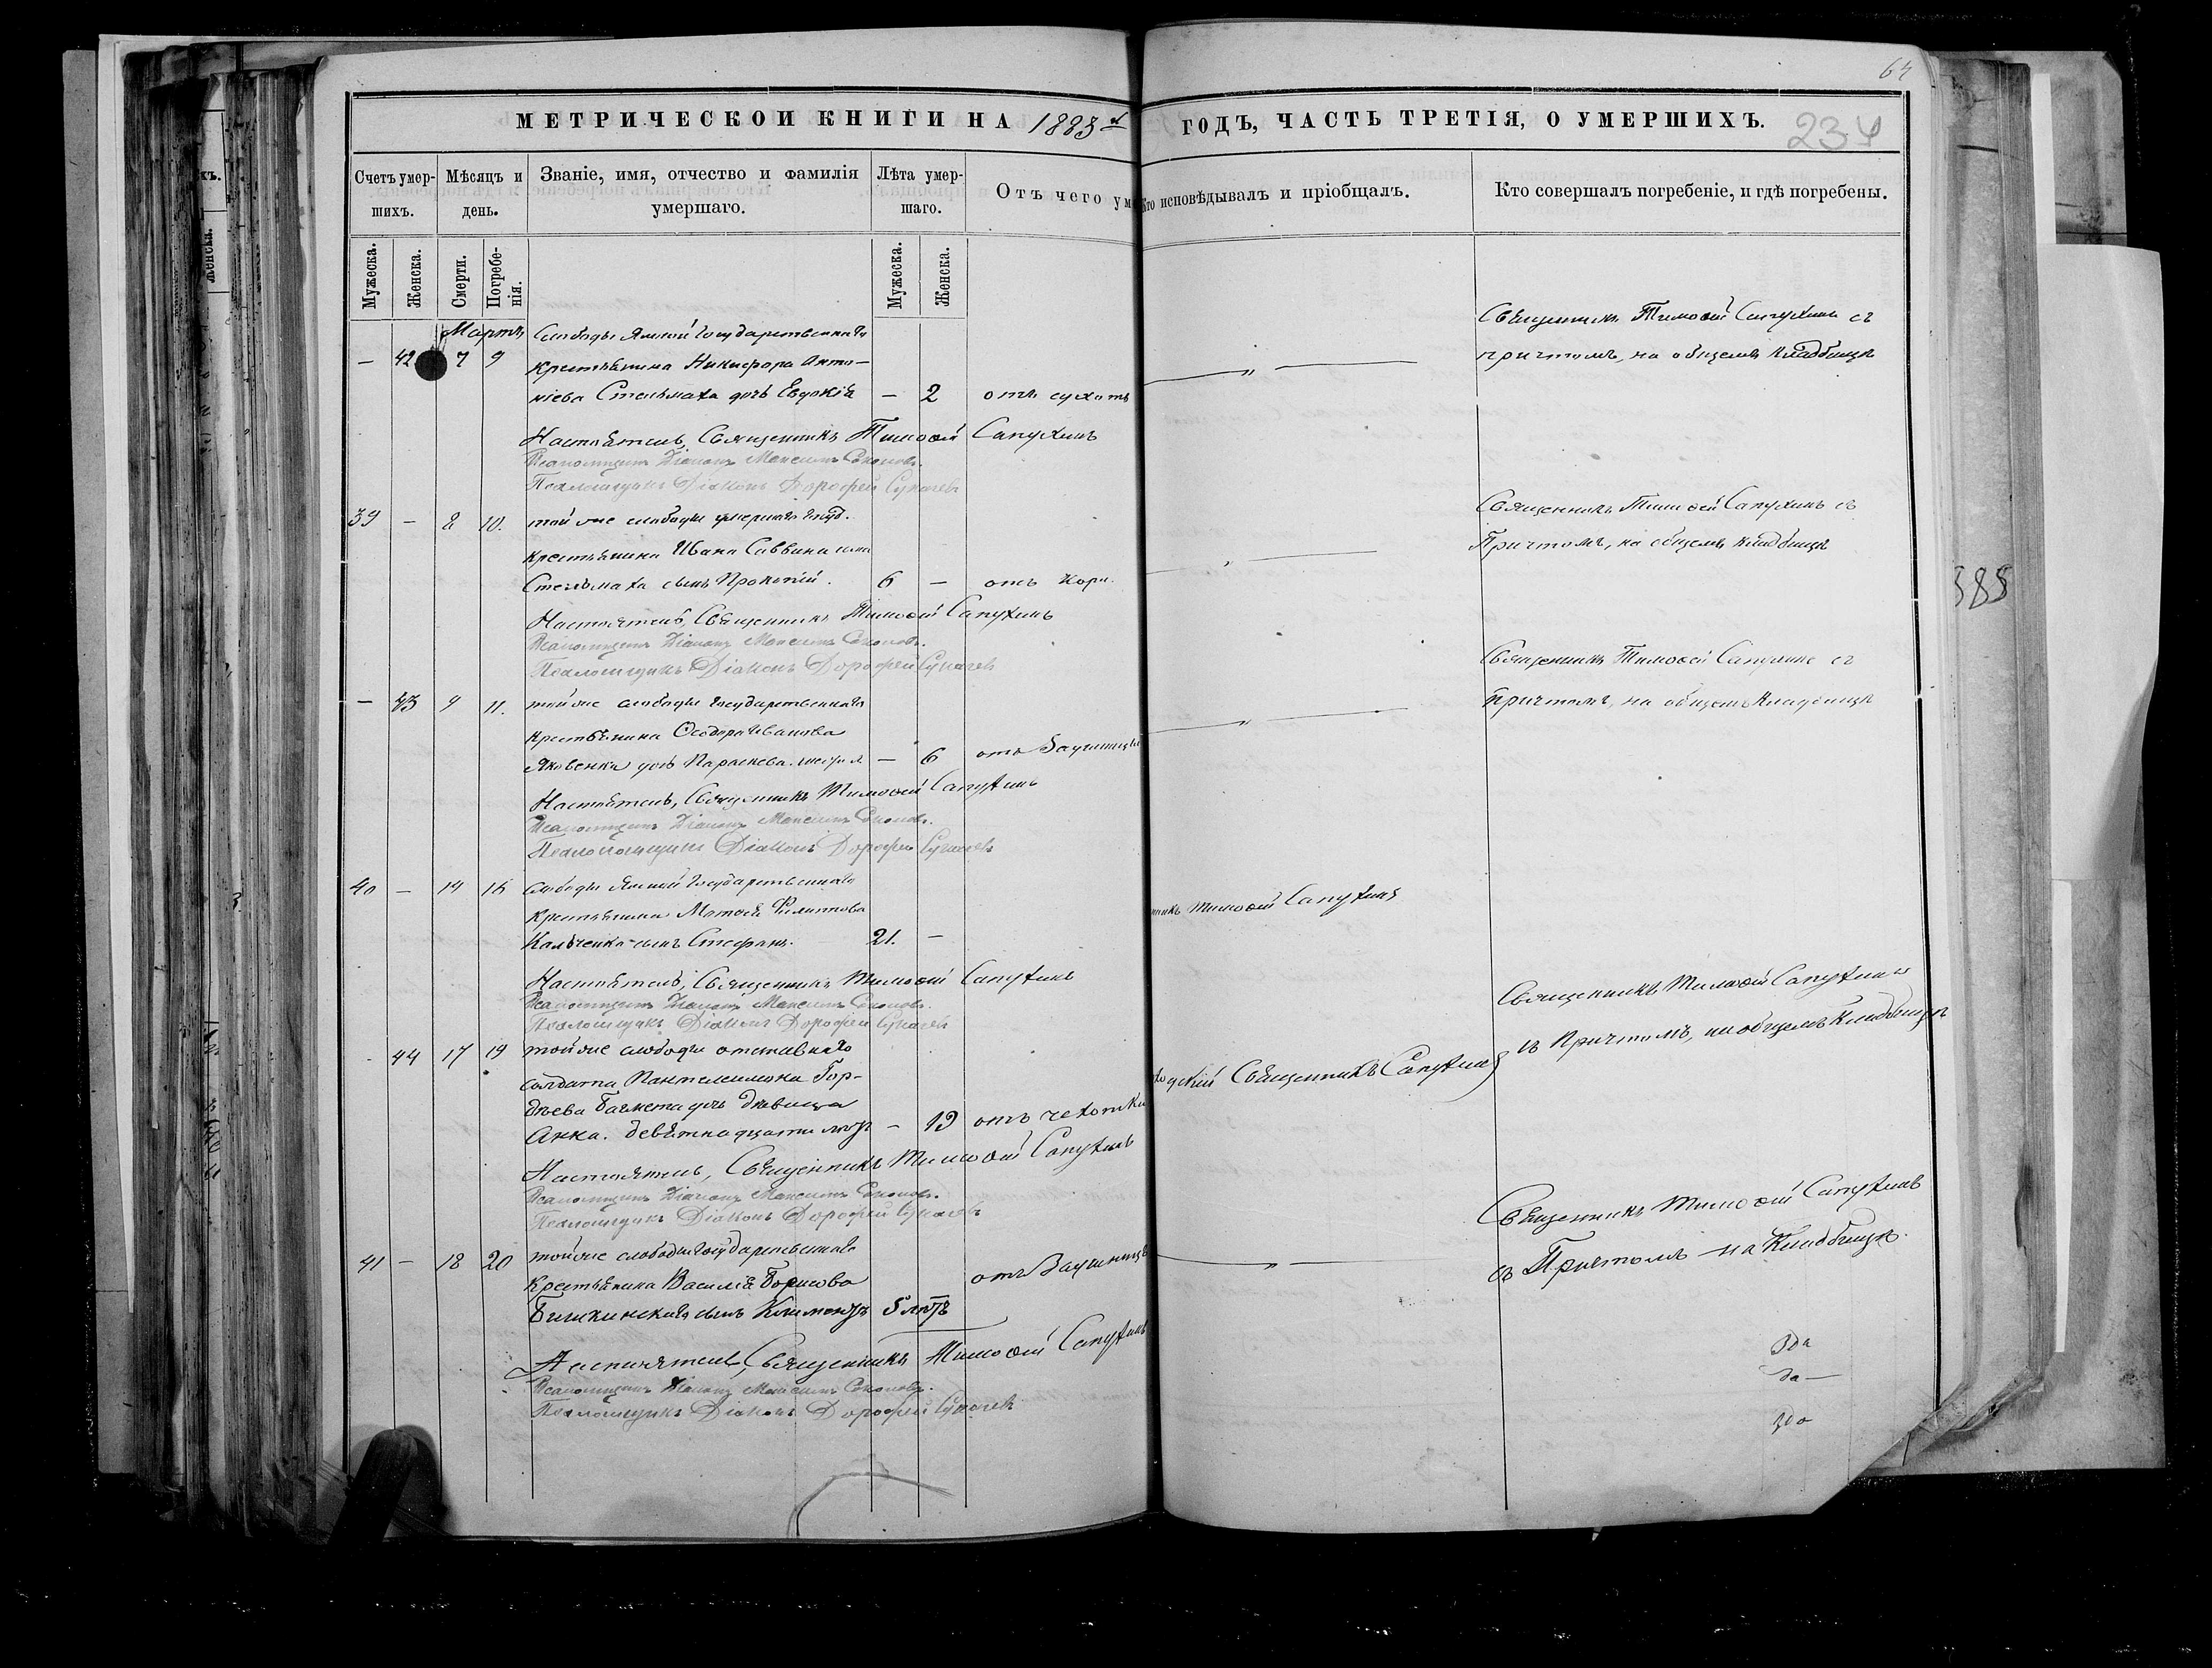 64
МЕТРИЧЕСКОЙ КНИГИ НА 1885 й ГОДЪ, ЧАСТЬ ТРЕТІЯ, О УМЕРШИХЪ.
234
Счетъ умершихъ.
Мѣсяцъ и день.
Званіе, имя, отчество и фамилія умершаго.
Лѣта умершаго.
Отъ чего ум
Кто исповѣдывалъ и пріобщалъ.
Кто совершалъ погребеніе, и гдѣ погребены.
Мужеска.
Женска.
Смерти.
Погребенія.
Мужеска.
Женска.
Мартъ
Слободы Ямной Государственнаго
— 42 7 9 крестьянина Никифора Анто-
ніева Стельмаха дочь Евдокія — 2 отъ сухотъ
— „ —
Священникъ Тимоѳей Сапухинъ съ
причтомъ, на общемъ кладбищѣ
Настоятель, Священникъ Тимоѳей Сапухинъ
Псаломщикъ Діаконъ Максимъ Соколовъ.
Псаломщикъ Діаконъ Дорофей Сукачевъ
39 — 8 10. той же слободы умершаго госуд.
крестьянина Ивана Саввина сына
Стельмаха сынъ Прокопій. 6 — отъ кори.
— „ —
Священникъ Тимоѳей Сапухинъ съ
Причтомъ, на общемъ кладбищѣ
Настоятель, Священникъ Тимоѳей Сапухинъ
Псаломщикъ Діаконъ Максимъ Соколовъ.
Псаломщикъ Діаконъ Дорофей Сукачевъ
— 43 9 11. той же слободы государственнаго
крестьянина Ѳеодора Иванова
Яковенка дочь Параскева. — 6 отъ Заушницы
— „ —
Священникъ Тимоѳей Сапухинъ съ
причтомъ, на общемъ кладбищѣ
Настоятель, Священникъ Тимоѳей Сапухинъ
Псаломщикъ Діаконъ Максимъ Соколовъ.
Псаломщикъ Діаконъ Дорофей Сукачевъ
40 — 14 16 слободы Ямной Государственнаго
крестьянина Матѳея Филиппова
Кальченка сынъ Стефанъ. 21. —
никъ Тимоѳей Сапухинъ
Настоятель, Священникъ Тимоѳей Сапухинъ
Псаломщикъ Діаконъ Максимъ Соколовъ.
Псаломщикъ Діаконъ Дорофей Сукачевъ
- 44 17 19 той же слободы отставнаго
солдата Пантелеимона Гор-
дѣева дочь дѣвица
Анна. девятнадцати лѣтъ — 19 отъ чахотки
ходскій Священникъ Сапухинъ
Священникъ Тимоѳей Сапухинъ
съ Причтомъ, на общемъ кладбищѣ
Настоятель, Священникъ Тимоѳей Сапухинъ
Псаломщикъ Діаконъ Максимъ Соколовъ.
Псаломщикъ Діаконъ Дорофей Сукачевъ
41 — 18 20 той же слободы Государственнаго
крестьянина Василія Борисова
Бишкинскаго сынъ Климентъ 5 лѣтъ
отъ Заушницъ
— „ —
Священникъ Тимоѳей Сапухинъ
съ Причтомъ на Кладбищѣ.
Настоятель, Священникъ Тимоѳей Сапухинъ
Псаломщикъ Діаконъ Максимъ Соколовъ.
Псаломщикъ Діаконъ Дорофей Сукачевъ